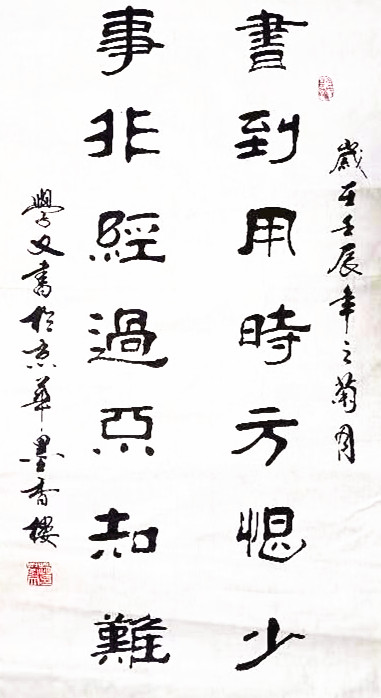 歲于壬辰年之菊月
書到用時方恨少
事非經過不知難
學文書於京華墨香樓